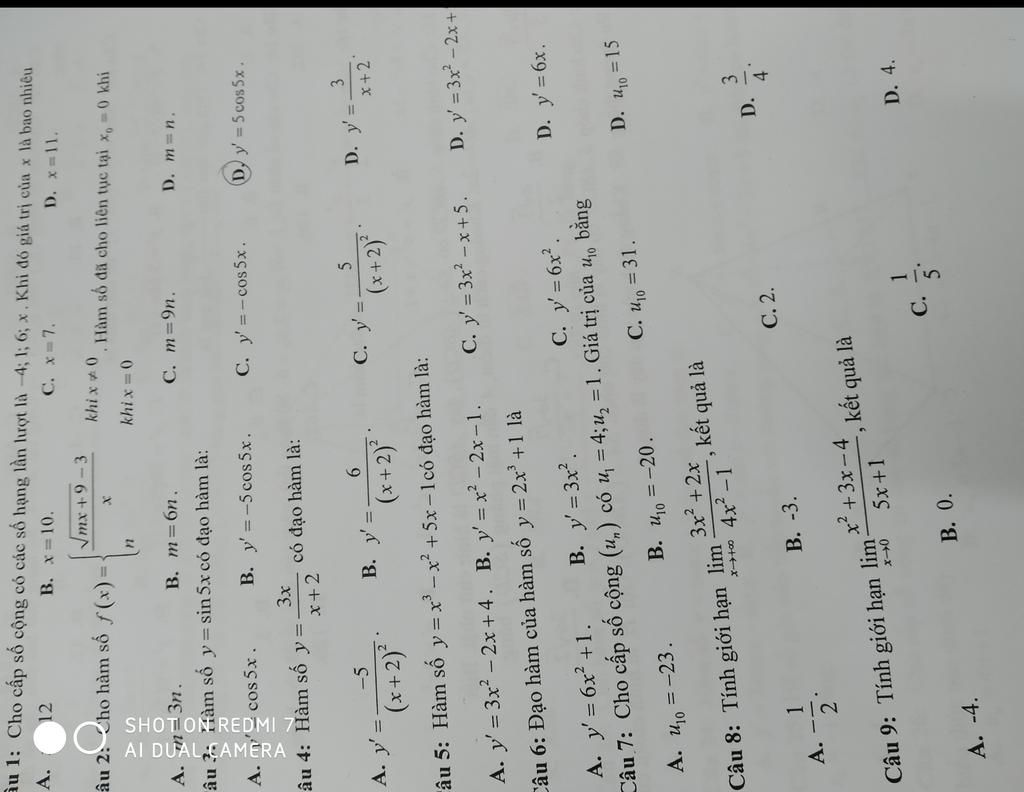 âu 1: Cho cấp số cộng có các số hạng lần lượt là −4; 1; 6; x. Khi đó giá trị của x là bao nhiêu
A. 12 B. x = 10. C. x = 7. D. x = 11.
âu 2: Cho hàm số f(x) = { (√(mx+9) − 3)/x khi x ≠ 0; n khi x = 0 . Hàm số đã cho liên tục tại x₀ = 0 khi
A. m = 3n. B. m = 6n. C. m = 9n. D. m = n.
âu 3: Hàm số y = sin 5x có đạo hàm là:
A. y' cos 5x. B. y' = −5 cos 5x. C. y' = −cos 5x. D. y' = 5 cos 5x.
âu 4: Hàm số y = 3x/(x+2) có đạo hàm là:
A. y' = −5/(x+2)². B. y' = 6/(x+2)². C. y' = 5/(x+2)². D. y' = 3/(x+2).
âu 5: Hàm số y = x³ − x² + 5x − 1 có đạo hàm là:
A. y' = 3x² − 2x + 4. B. y' = x² − 2x − 1. C. y' = 3x² − x + 5. D. y' = 3x² − 2x +
Câu 6: Đạo hàm của hàm số y = 2x³ + 1 là
A. y' = 6x² + 1. B. y' = 3x². C. y' = 6x². D. y' = 6x.
Câu 7: Cho cấp số cộng (uₙ) có u₁ = 4; u₂ = 1. Giá trị của u₁₀ bằng
A. u₁₀ = −23. B. u₁₀ = −20. C. u₁₀ = 31. D. u₁₀ = 15
Câu 8: Tính giới hạn lim x→+∞ (3x² + 2x)/(4x² − 1), kết quả là
A. −1/2. B. -3. C. 2. D. 3/4.
Câu 9: Tính giới hạn lim x→0 (x² + 3x − 4)/(5x + 1), kết quả là
A. -4. B. 0. C. 1/5. D. 4.
SHOT ON REDMI 7
AI DUAL CAMERA